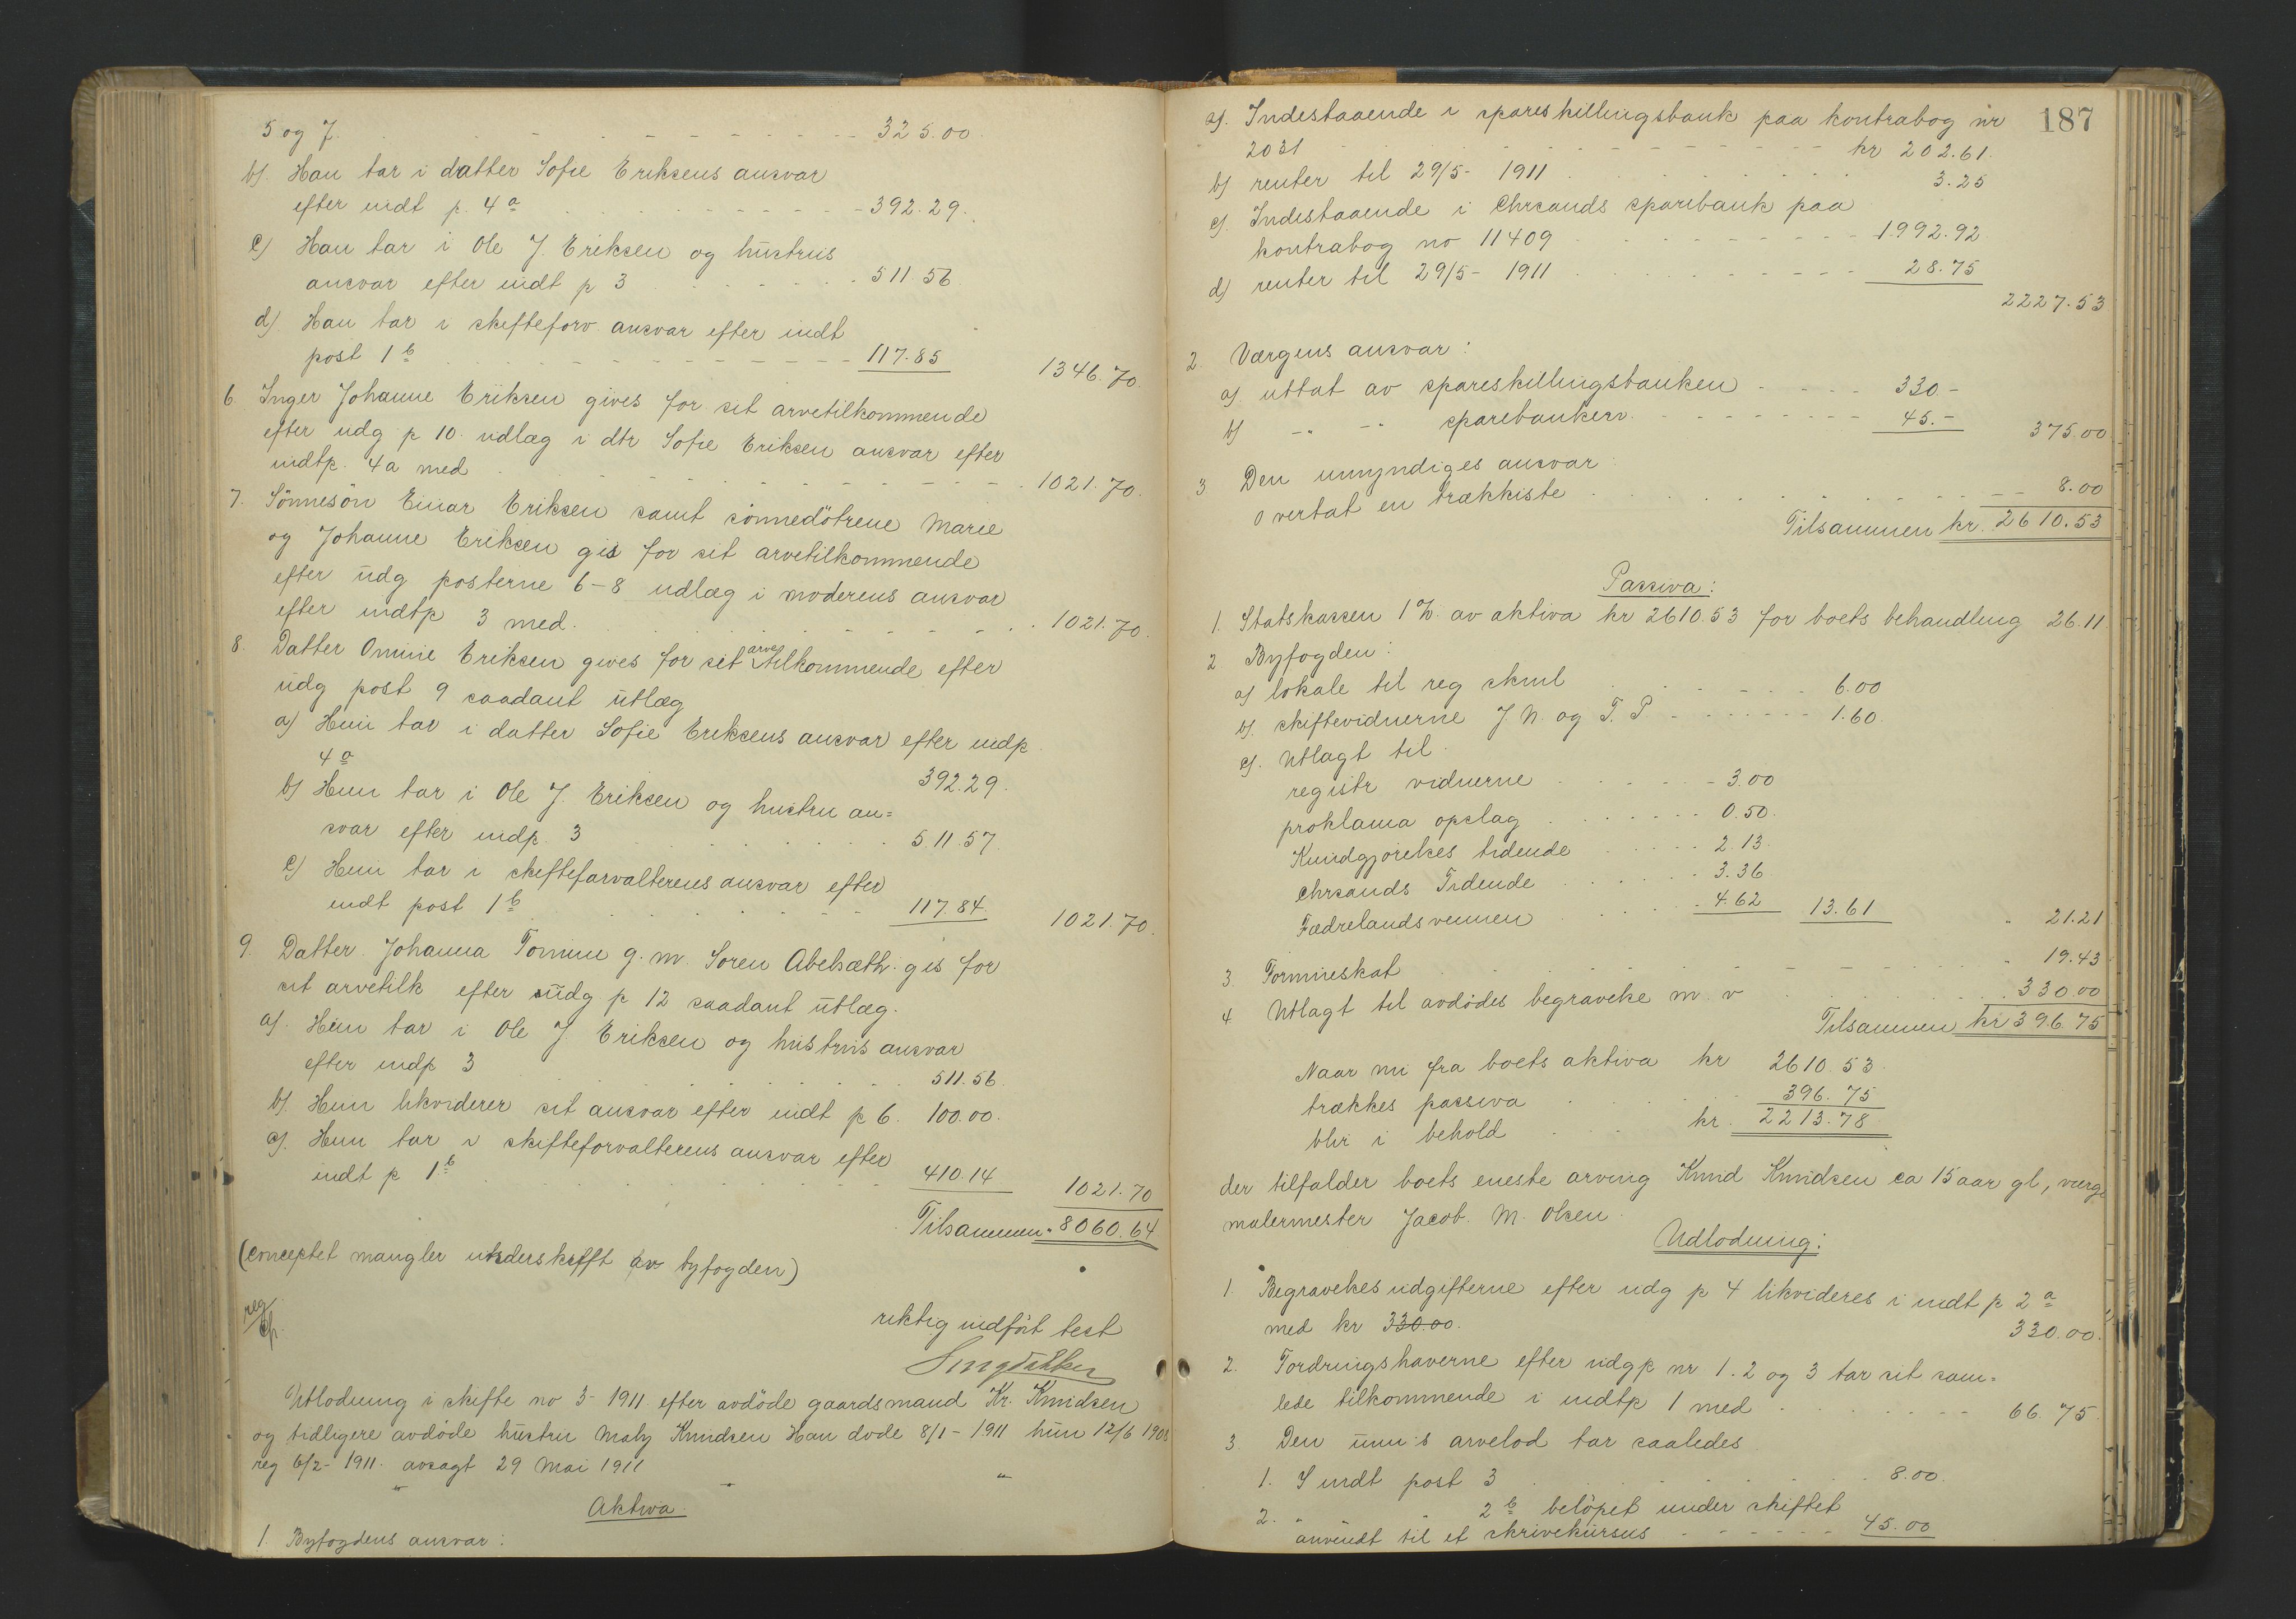 5 og 7. 325.00.
b). Han tar i datter Sofie Eriksens ansvar
efter indt p. 4 a 392.29.
c) Han tar i Ole J. Eriksen og hustrus
ansvar efter indt p 3 511 56
d). Han tar i skifteforv ansvar efter indt
post 1 b 117.85 1346.70.
6. Inger Johanne Eriksen gives for sit arvetilkommende
efter udg p 10. udlæg i dtr Sofie Eriksen ansvar efter
indtp. 4a med 1021.70.
7. Sönnesön Einar Eriksen samt sönnedötrene Marie
og Johanne Eriksen gis for sit arvetilkommende
efter udg posterne 6-8 udlæg i moderens ansvar
efter indtp 3 med. 1021.70.
8. Datter Ommie Eriksen gives for sit arvetilkommende efter
udg post 9 saadant utlæg
a) Hun tar i datter Sofie Eriksens ansvar efter indp
4 a 392.29.
b) Hun tar i Ole J. Eriksen og hustru an=
svar efter indp. 3 511.57.
c) Hun tar i skifteforvalterens ansvar efter
indt post 1 b 117.84. 1021.70.
9. Datter Johanna Tomine g. m. Soren Abelsæth gis for
sit arvetilk efter udg p 12 saadant utlæg.
a). Hun tar i Ole J. Eriksen og hustrus ansvar
efter indp 3 511.56.
b). Hun likviderer sit ansvar efter indt p 6. 100.00.
c). Hun tar i skifteforvalterens ansvar efter
indt p 1 b 410.14 1021.70
Tilsammen " 8060.64
(conceptet mangler underskrift av byfogden)
reg
riktig indført test
Utlodning i skifte no 3- 1911 efter avdöde gaardsmand Kr. Knudsen
og tidligere avdöde hustru Maly Knudsen Han dode 8/1 - 1911 hun 12/6 1903
reg 6/2 - 1911. avsagt 29 Mai 1911
Aktiva
1. Byfogdens ansvar:
187
a). Indestaaende i spareskillingsbank paa kontrabog nr
2031 kr 202.61.
b) renter til 29/5- 1911 3.25
c). Indestaaende i Chrsands sparebank paa
kontrabog no 11409 1992.92.
d) renter til 29/5- 1911 28.75
2227.53
2. Værgens ansvar:
a). uttat av spareskillingsbanken 330.-
b) -"- -"- sparebanken 45.- 375.00
3 Den umyndiges ansvar:
overtat en trækkiste 8.00
Tilsammen kr. 2610.53
Passiva:
1. Statskassen 1 % av aktiva kr 2610.53 for boets behandling 26.11
2 Byfogden:
a) lokale til reg skml 6.00
b). skiftevidnerne J. N. og T. P 1.60.
c). Utlagt til
registr vidnerne 3.00
proklama opslag 0.50.
Kundgjörelses tidende 2.13
Chrsands Tidende 3.36
Fædrelandsvennen 4.62 13.61 " 21.21
3. Formueskat " 19.43
4 Utlagt til avdödes begravelse m. v 330.00
Tilsammen kr 396.75
Naar nu fra boets aktiva kr 2610.53
trækkes passiva 396.75
blir i behold kr. 2213.78
der tilfalder boets eneste arving Knud Knudsen ca 15 aar gl, værge
malermester Jacob. M. Olsen
Udlodning:
1. Begravelsesudgifterne efter udg p 4 likvideres i indt p 2 a
med kr 330.00. 330.00.
2. Fordringshaverne efter udgp nr 1. 2 og 3 tar sit sam=
lede tilkommende i indtp 1 med 66.75.
3. Den um's arvelod tar saaledes
1. I indt post 3 8.00.
2. " " 2 b belöpet under skiftet
anvendt til et skrivekursus 45.00